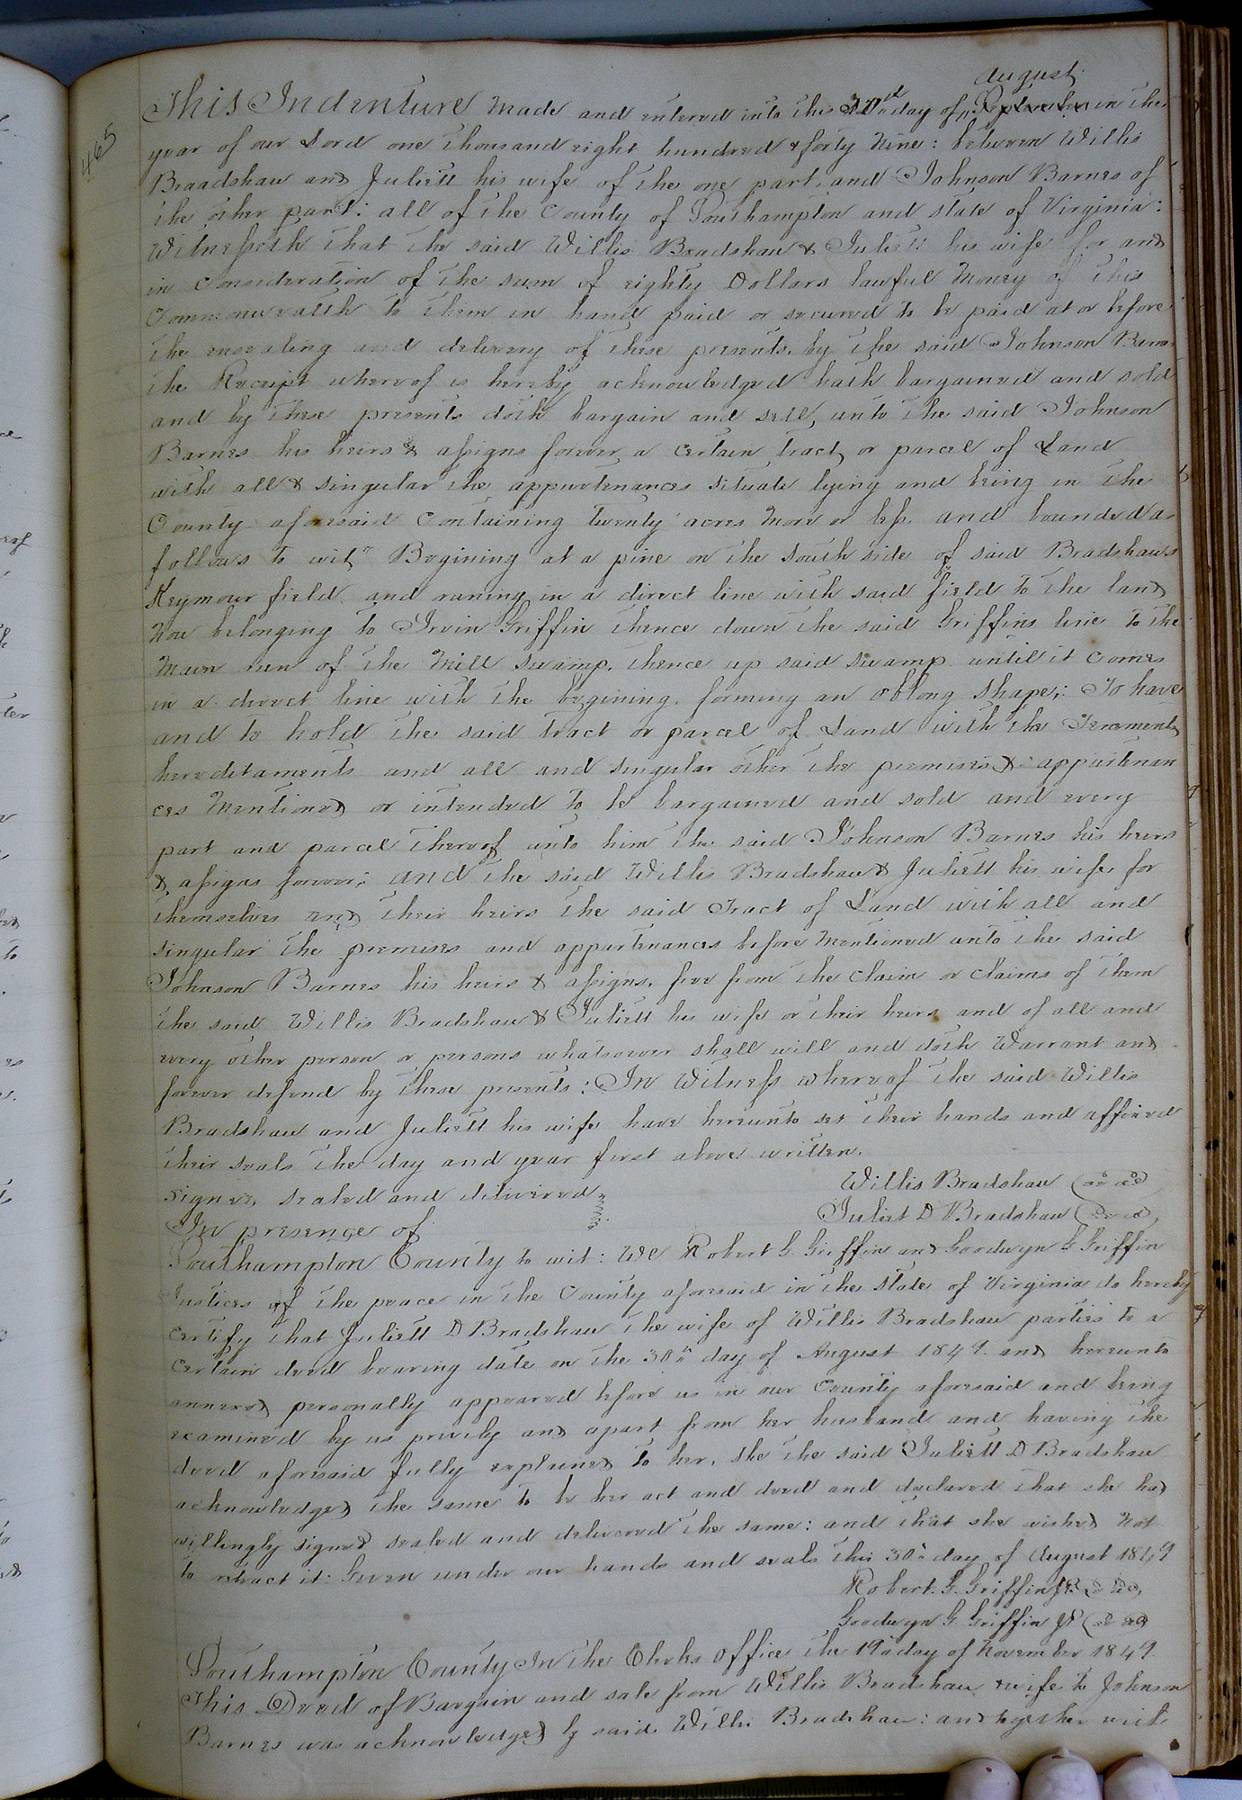 465
august
This Indenture Made and entered into this 30th day of September in the
year of our Lord one thousand eight hundred & forty Nine: between Willis
Braadshaw and Juliett his wife of the one part and Johnson Barnes of
the other part: all of the County of Southampton and state of Virginia:
Witnesseth that the said Willis Bradshaw & Juliett his wife for and
in Consideration of the sum of eighty Dollars lawful Money of this
Commonwealth to them in hand paid or secured to be paid at or before
the ensealing and delivery of these presents, by the said Johnson Barns
the Receipt whereof is hereby acknowledged hath bargained and sold
and by these presents doth bargain and sell, unto the said Johnson
Barnes his heirs & assigns forever a Certain tract or parcel of Land
with all & singular the appurtenances situate lying and being in the
County aforesaid Containing Twenty acres More or less. and bounded as
follows to wit Begining at a pine on the south side of said Bradshaws
Keymour field and runing in a direct line with said field to the land
Now belonging to Irvin Griffin thence down the said Griffins line to the
Main run of the Mill swamp, thence up said swamp until it comes
in a direct line with the begining, forming an oblong shape; To have
and to hold the said tract or parcel of Land with the Tenements
hereditaments and all and singular other the premises & appurtenan
ces Mentioned or intended to be bargained and sold and every
part and parcel thereof unto him the said Johnson Barnes his heirs
& assigns forever; and the said Willis Bradshaw & Juliett his wife for
themselves and their heirs the said Tract of Land with all and
singular the premises and appurtenances before Mentioned unto the said
Johnson Barnes his heirs & assigns, free from the claim or claims of them
the said Willis Bradshaw & Juliett his wife or their heirs and of all and
every other person or persons whatsoever shall will and doth Warrant and
forever defend by these presents: In Witness whereof the said Willis
Bradshaw and Juliett his wife have hereunto set their hands and affixed
their seals the day and year first above written.
Signed, sealed and delivered Willis Bradshaw (seal)
In presence of Juliet D Bradshaw (seal)
Southampton County to wit: We Robert G. Griffin and Goodwyn G Griffin
Justices of the peace in the County aforesaid in the State of Virginia do hereby
certify that Juliett D Bradshaw the wife of Willis Bradshaw parties to a
Certain deed bearing date on the 30th day of August 1849 and hereunto
annexed personally appeared before us in our County aforesaid and being
examined by us privily and apart from her husband and having the
deed aforesaid fully explained to her, she the said Juliett D Bradshaw
acknowledged the same to be her act and deed and declared that she had
willingly signed sealed and delivered the same: and that she wished Not
to retract it: Given under our hands and seals this 30th day of August 1849
Robert. G. Griffin JP. (seal)
Goodwyn G Griffin JP (seal)
Southampton County In the Clerks office the 19th day of November 1849.
This Deed of Bargain and sale from Willis Bradshaw & wife to Johnson
Barnes was acknowledged by said Willis Bradshaw: and together with